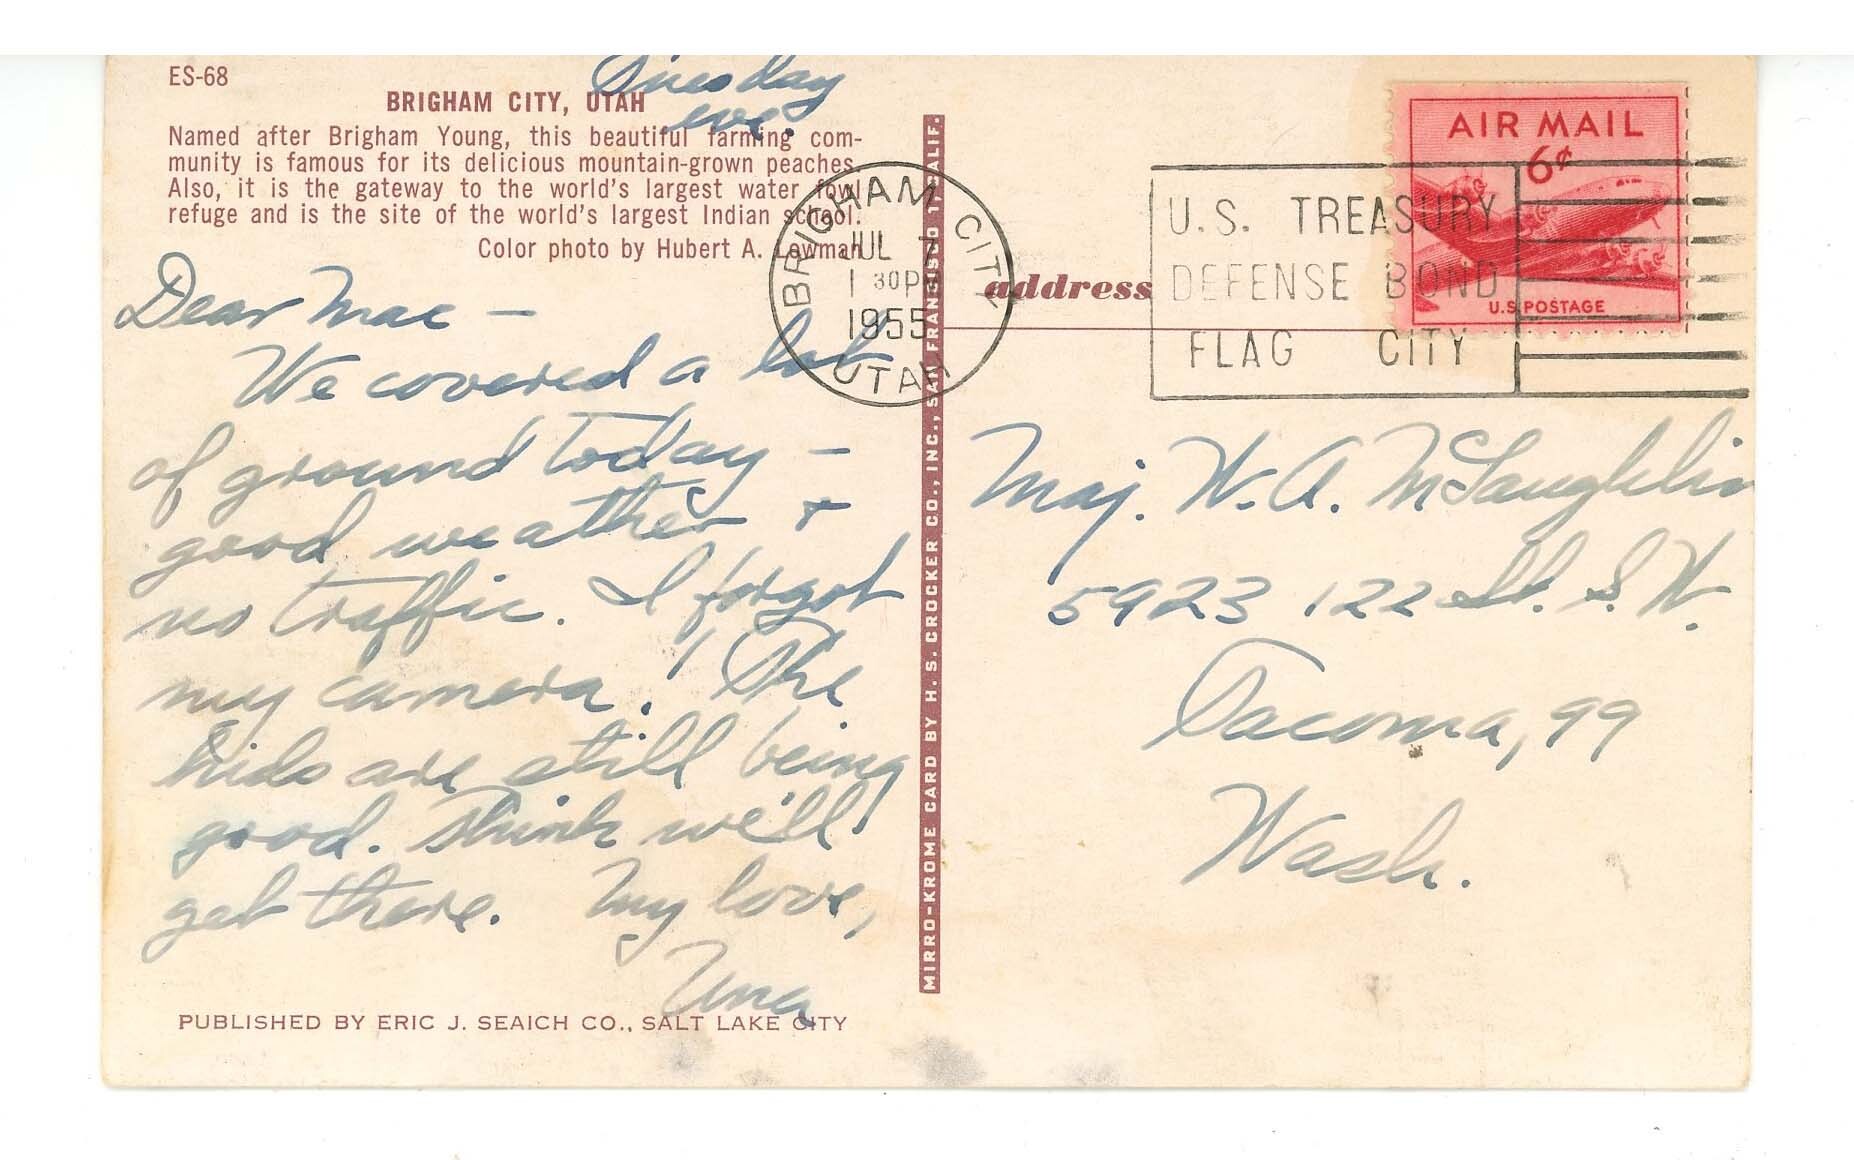 ES-68
Tuesday
eve.
BRIGHAM CITY, UTAH
Named after Brigham Young, this beautiful farming com-
munity is famous for its delicious mountain-grown peaches.
Also, it is the gateway to the world's largest water fowl
refuge and is the site of the world's largest Indian school.
Color photo by Hubert A. Lowman
Dear Mac —
We covered a lot
of ground today —
good weather &
no traffic. I forgot
my camera! The
kids are still being
good. Think we'll
get there. My love,
Una
PUBLISHED BY ERIC J. SEAICH CO., SALT LAKE CITY
MIRRO-KROME CARD BY H. S. CROCKER CO., INC., SAN FRANCISCO 1, CALIF.
BRIGHAM CITY
JUL 7
1 30 PM
1955
UTAH
address
U.S. TREASURY
DEFENSE BOND
FLAG CITY
AIR MAIL
6¢
U.S. POSTAGE
Maj. W. A. McLaughlin
5923 122 St. S.W.
Tacoma, 99
Wash.